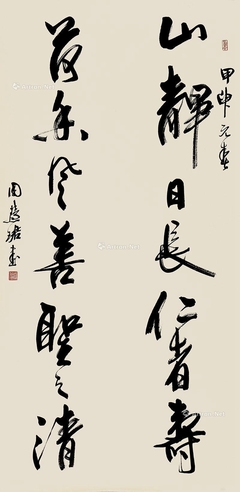 甲申元春
山靜日長仁者壽
荷香風善聖之清
周慧珺書